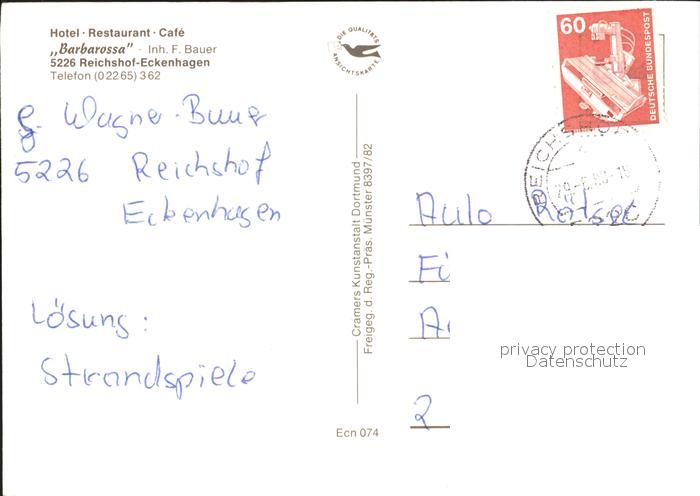 Hotel · Restaurant · Café
„Barbarossa" · Inh. F. Bauer
5226 Reichshof-Eckenhagen
Telefon (0 22 65) 3 62
DIE QUALITÄTS
ANSICHTSKARTE
60
DEUTSCHE BUNDESPOST
g. Wagner-
5226 Reichshof
Eckenhagen
Lösung:
Strandspiele
Cramers Kunstanstalt Dortmund
Freigeg. d. Reg.-Präs. Münster 8397/82
Ecn 074
REICHSHOF
Aulo
2
privacy protection
Datenschutz